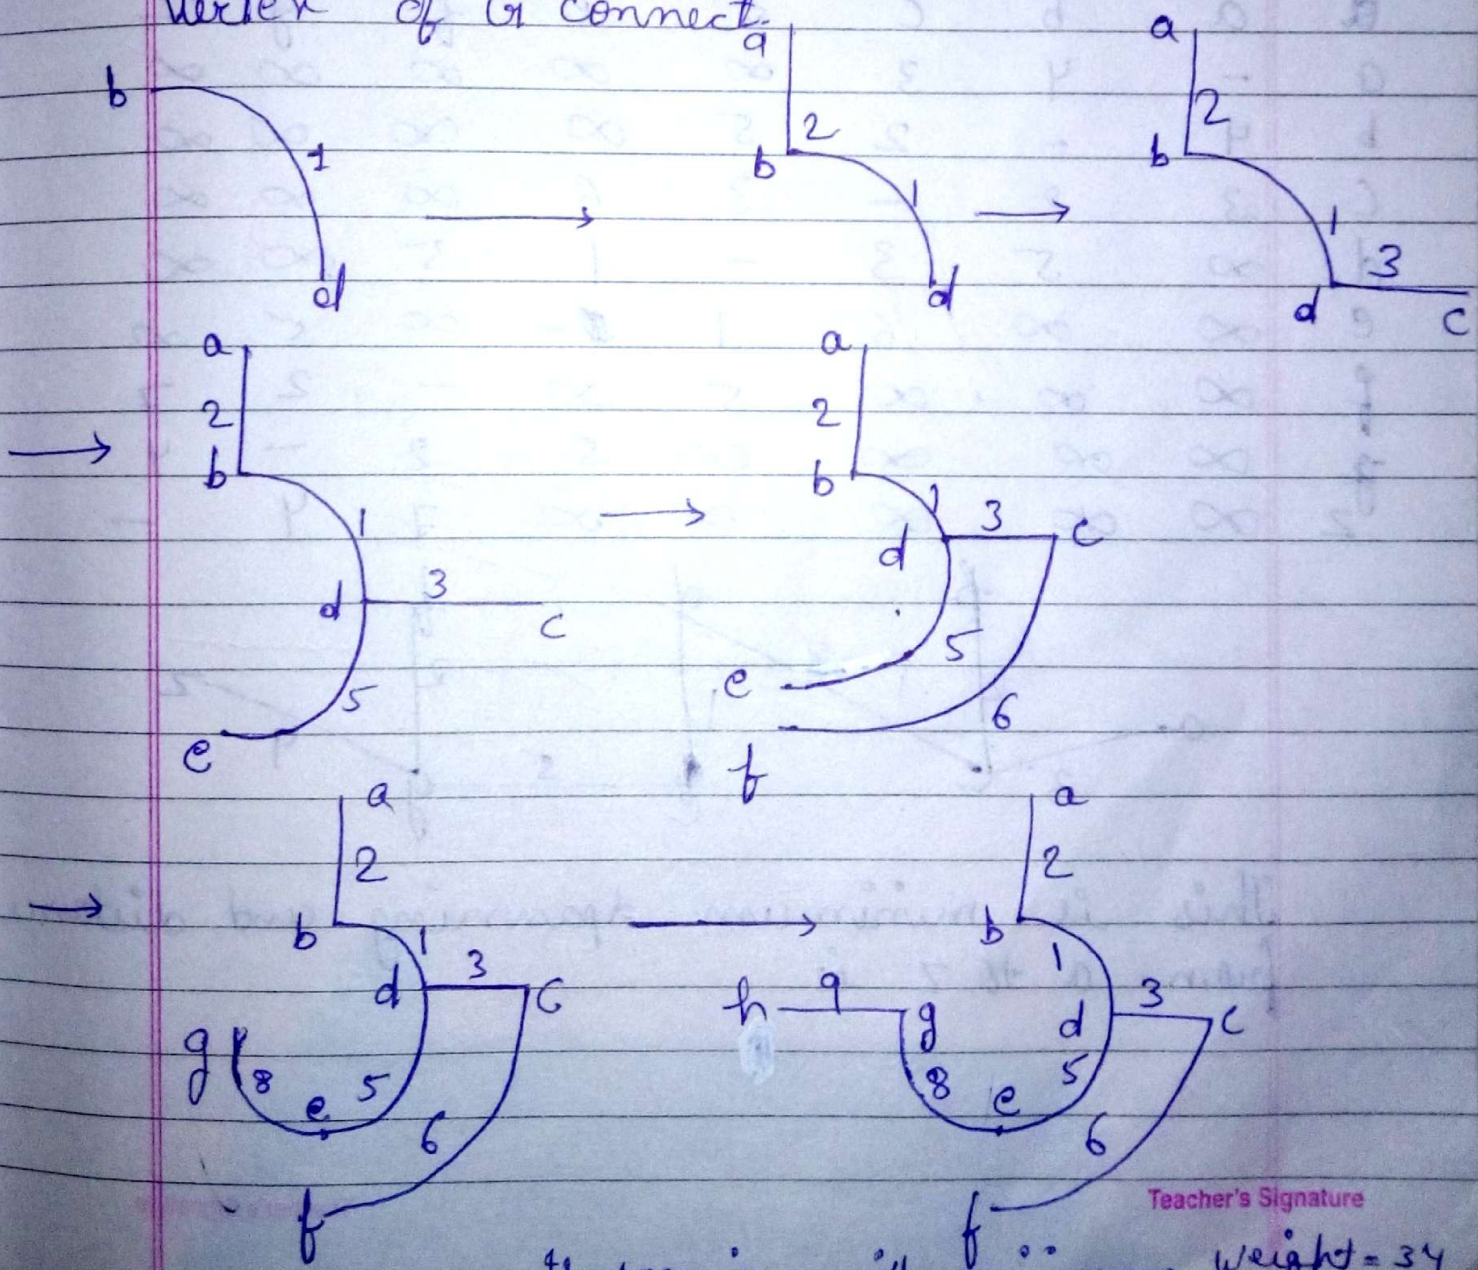 vertex of G connect.
b 1 d
a 2 b 1 d
a 2 b 1 d 3 c
a 2 b 1 d 3 c 5 e
a 2 b 1 d 3 c 5 e 6 f
a 2 b 1 d 3 c g 8 e 5 6 f
a 2 b 1 d 3 c h 9 g 8 e 5 6 f
Teacher's Signature
weight = 34